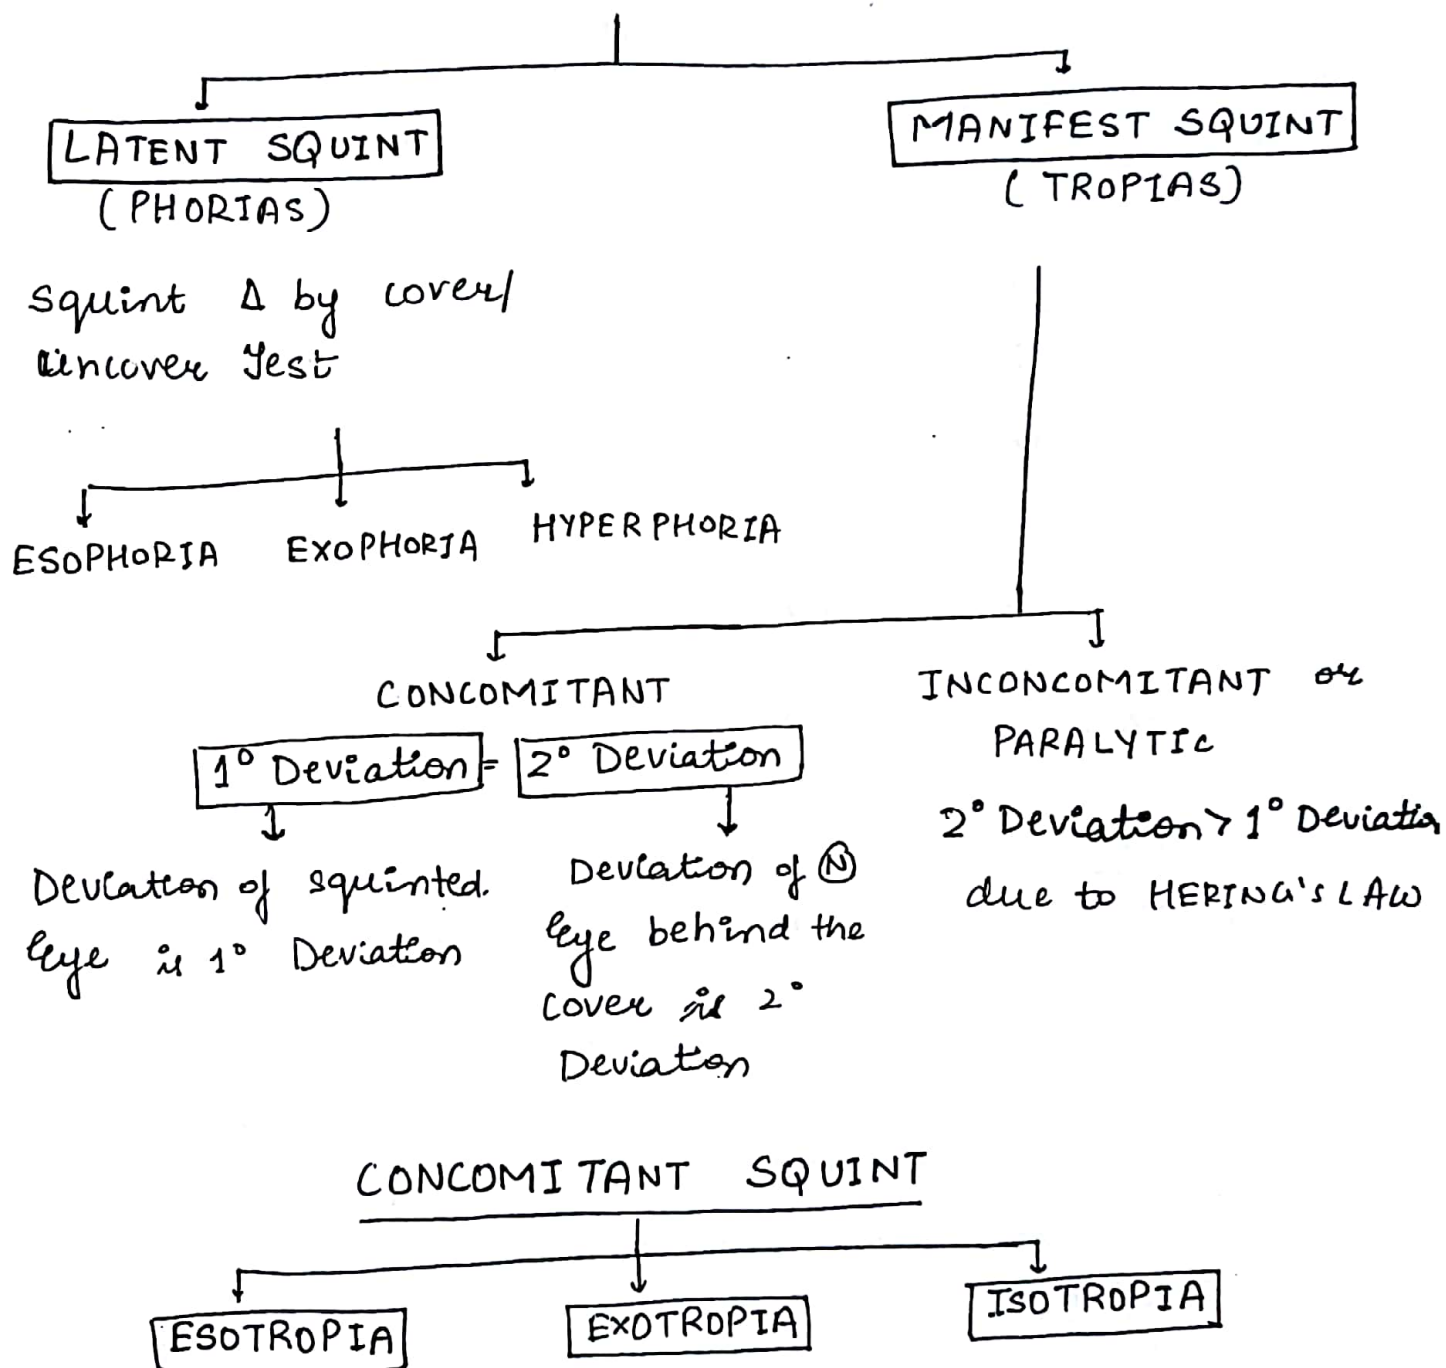 LATENT SQUINT
(PHORIAS)
MANIFEST SQUINT
(TROPIAS)
Squint Δ by cover/
Uncover Test
ESOPHORIA
EXOPHORIA
HYPERPHORIA
CONCOMITANT
1° Deviation = 2° Deviation
Deviation of squinted.
Eye is 1° Deviation
Deviation of Ⓝ
Eye behind the
cover is 2°
Deviation
INCONCOMITANT or
PARALYTIC
2° Deviation > 1° Deviation
due to HERING'S LAW
CONCOMITANT SQUINT
ESOTROPIA
EXOTROPIA
ISOTROPIA